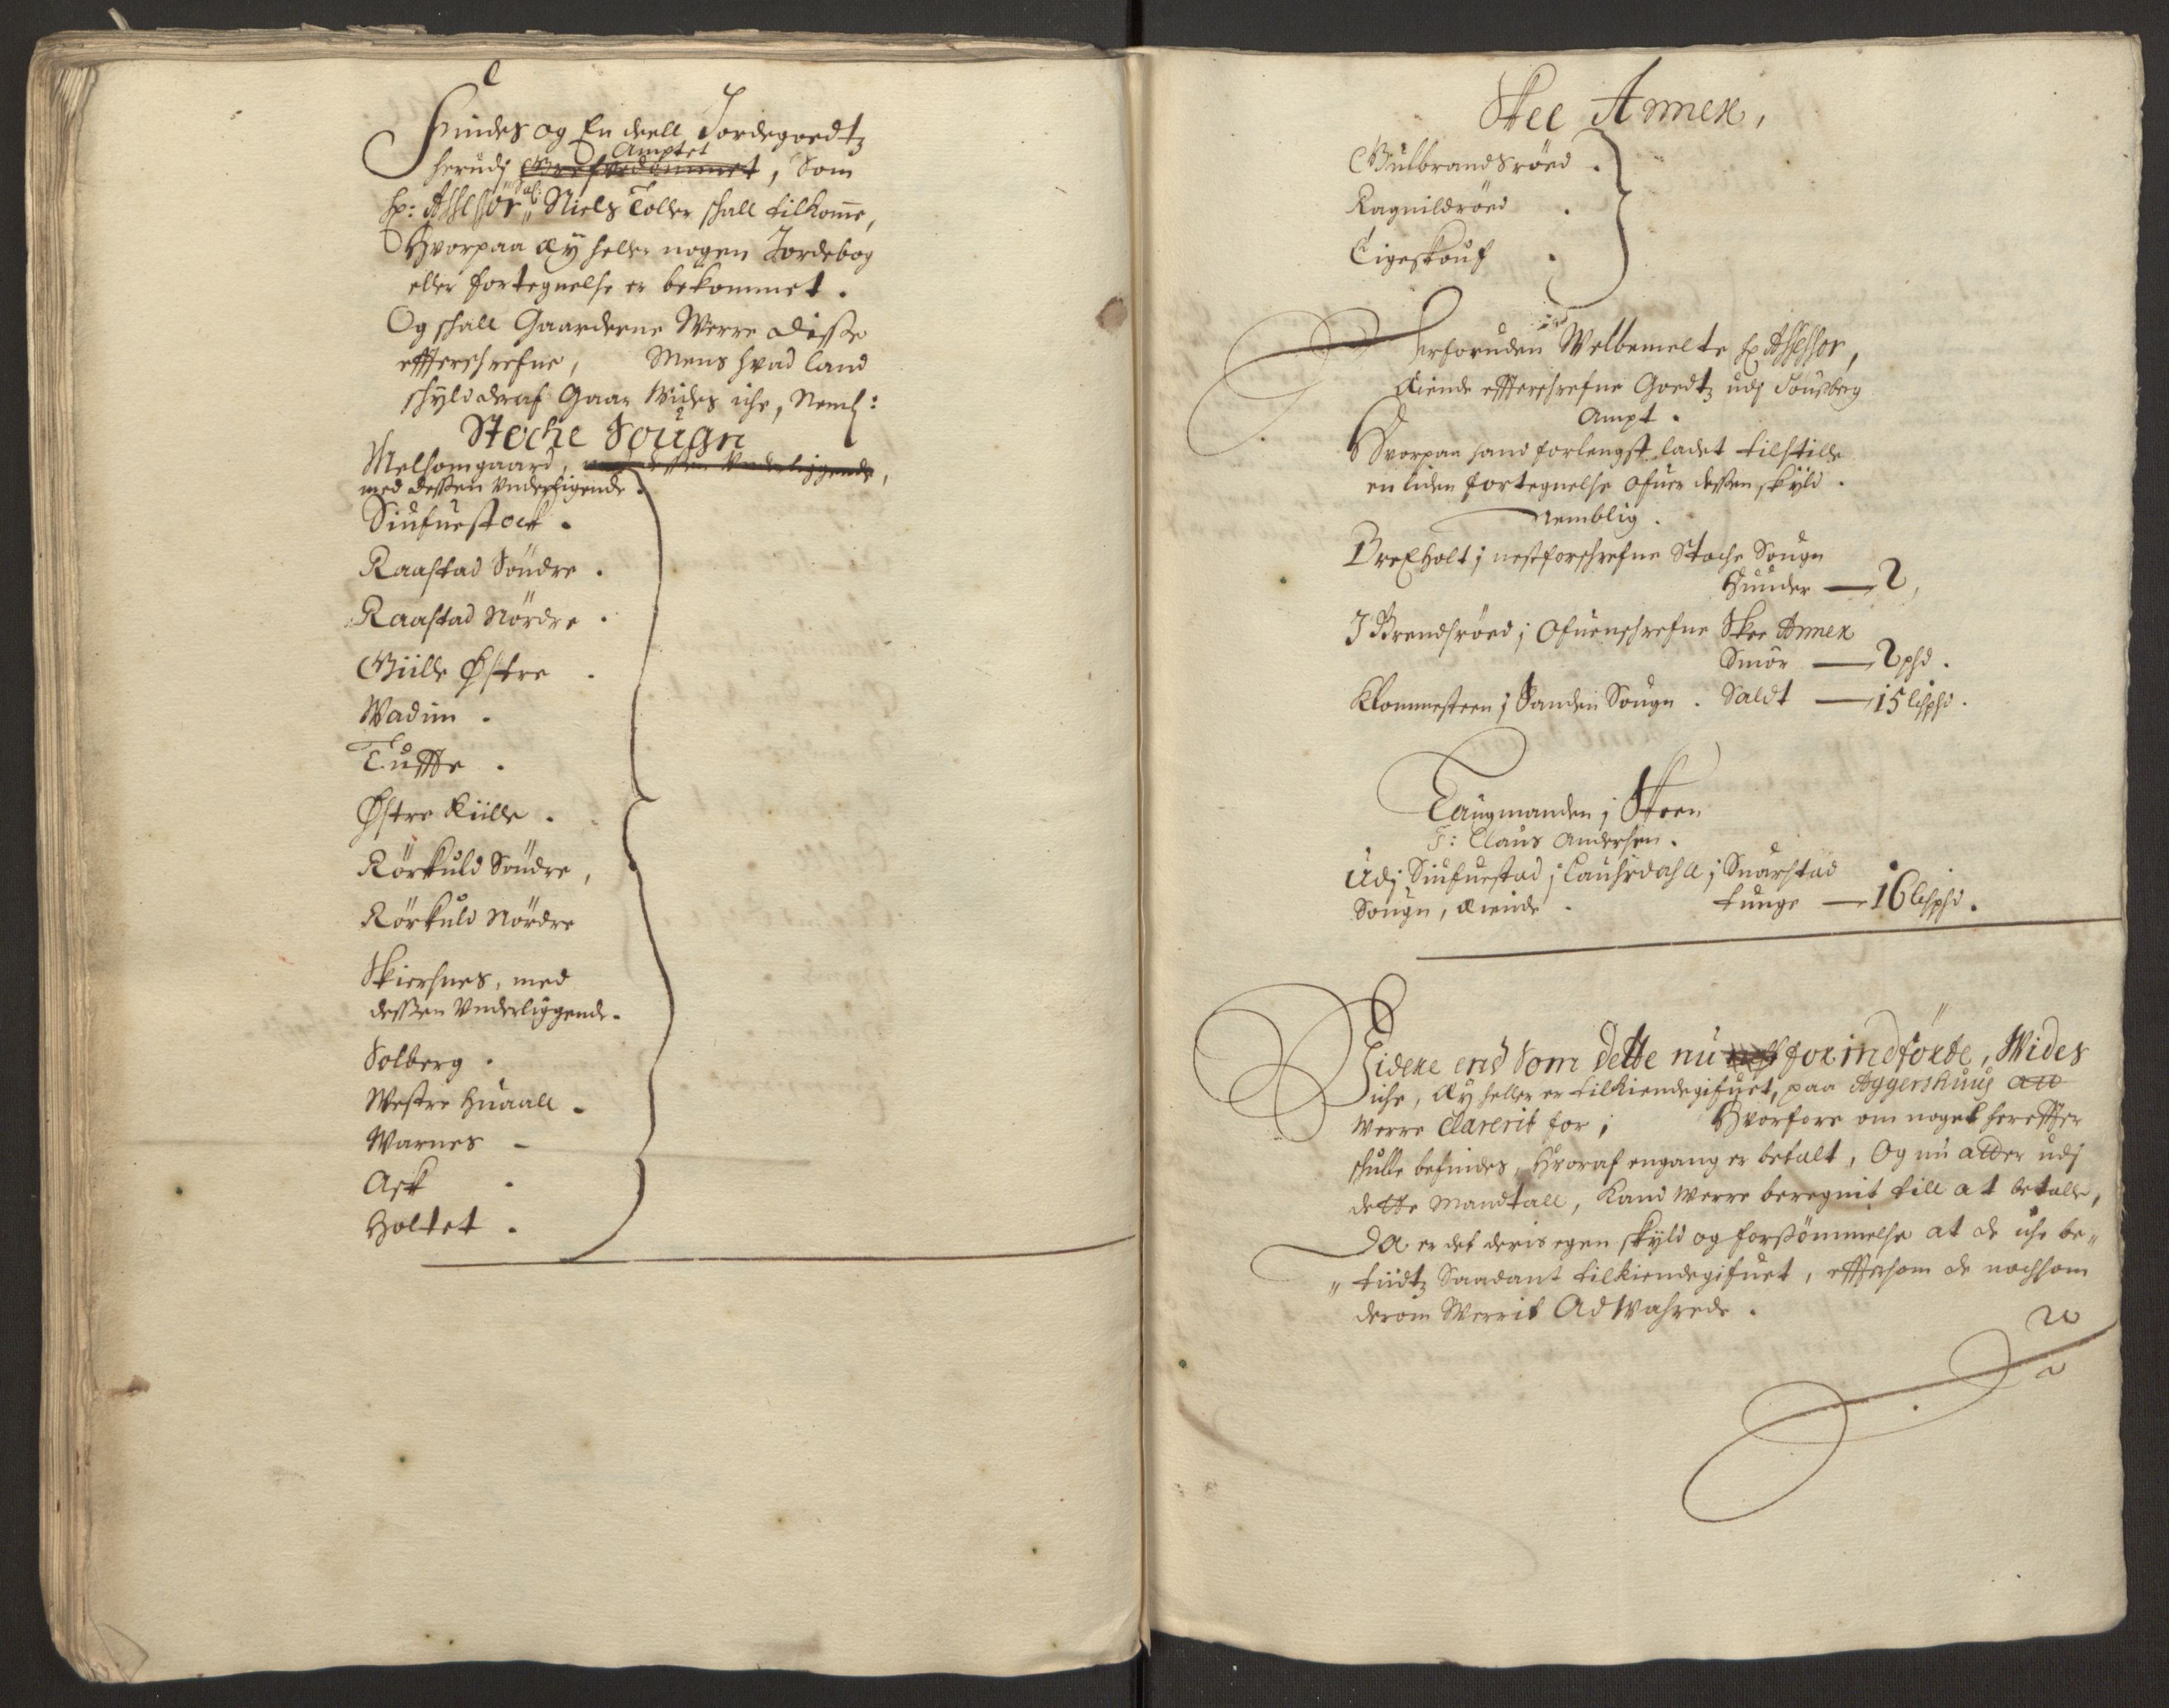 Findes og En deell Jordegoedtz
herudj Grefvedømmet, Som
Amptet
Hr: Assessor Sal: Niels Toller schall tilkome,
Hvorpaa Ey heller nogen Jordebog
eller fortegnelse er bekommet.
Og schall Gaarderne Werre disse
effterschrefne, Mens hvad land
schyld deraf Gaar Wides iche, Neml:
Stoche Sougn
Melsomgaard, med dessen Underliggende,
med dessen Underligende.
Siufuestock.
Raastad Söndre.
Raastad Nördre.
Giille Østre.
Wadum.
Tuffte.
Østre Riille.
Rörkuld Söndre,
Rörkuld Nördre
Skiersnes, med
dessen Underliggende.
Solberg.
Westre Huaall.
Warnes
Ask
Holtet.
Skee Annex,
Gulbrandsröed.
Ragnildröed.
Eigeskouf.
Herforuden Welbemelte Hr Assessor,
Eiende effterschrefne Goedtz udj Tonsberg
Ampt.
Hvorpaa hand forlengst ladet tilstille
en liden fortegnelse ofuer dessen skyld.
Nemblig.
Brekholt j nestforschrefne Stoche Sougn
Hunder — 2,
J Brendsröed j Ofuenschrefne Skee Annex
Smör — 2 pd.
Klommesteen j Sanden Sougn. Saldt — 15 lispd.
Laugmanden j Skeen
S: Claus Andersen.
Udj Siufuestad j Lauhrdahll j Suarstad
Sougn, Eiende. tunge — 16 lispd.
Videre end Som dette nu for indförte, Wides
iche, Ey heller er tilkiendegifuet, paa Aggershuus att
Werre Clarerit for; Hvorfore om noget hereffter
schulle befindes, Hvoraf engang er betalt, Og nu atter udj
dette Mandtall, Kand Werre beregnit till at betalle,
Da er det deris egen skyld og forsömmelse at de iche be„
„tiidtz Saadant tilkiendegifuet, efftersom de nochsom
derom Werrit Adwahrede.